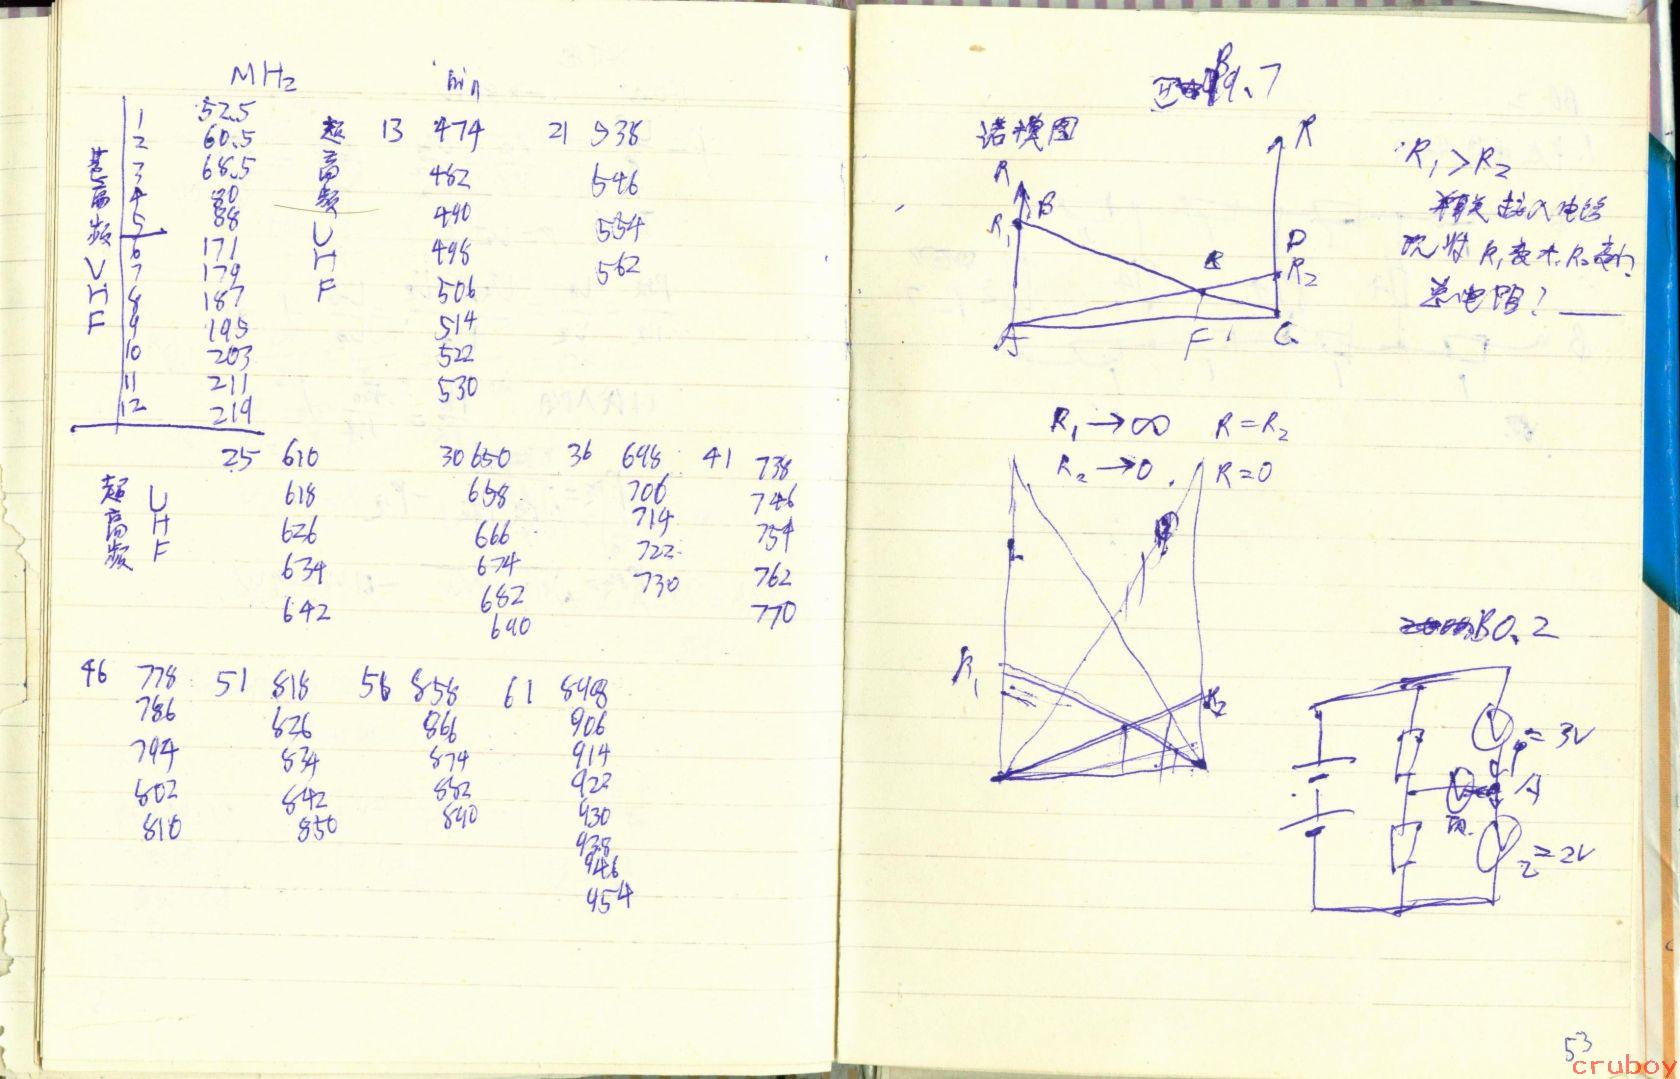 MHz
甚高频 VHF
1 52.5
2 60.5
3 68.5
4 80
5 88
6 171
7 179
8 187
9 195
10 203
11 211
12 219
超高频 UHF
13 474
482
490
498
506
514
522
530
21 538
546
554
562
超高频 UHF
25 610
618
626
634
642
30 650
658
666
674
682
690
36 698
706
714
722
730
41 738
746
754
762
770
46 778
786
794
802
810
51 818
826
834
842
850
56 858
866
874
882
890
61 898
906
914
922
930
938
946
954
B9.7
诺模图
R
R
R₁
B
D
R₂
A
F
C
R₁>R₂
接入电路
R₁变大
总电阻?
R₁→∞ R=R₂
R₂→0. R=0
R₁
R₂
B0.2
V₁=3V
A
V
V₂=2V
53
cruboy